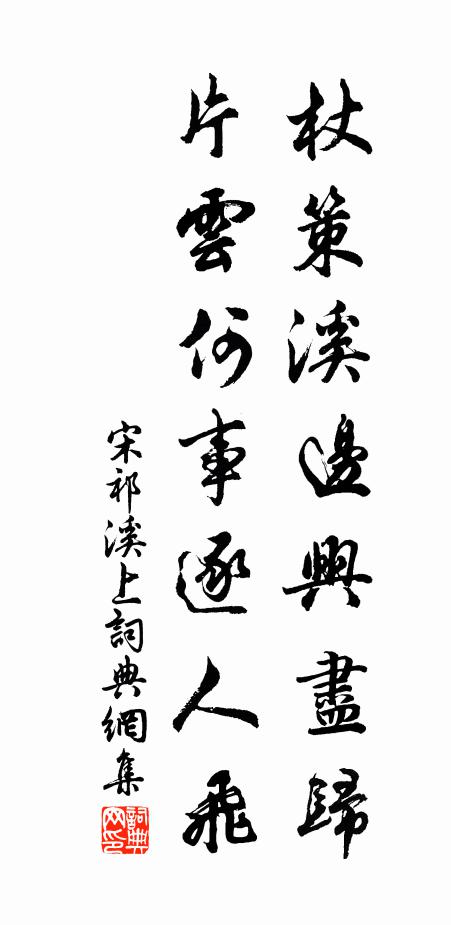 杖策溪邊興盡歸
片雲何事逐人飛
宋祁溪上詞典網集
詞典網印